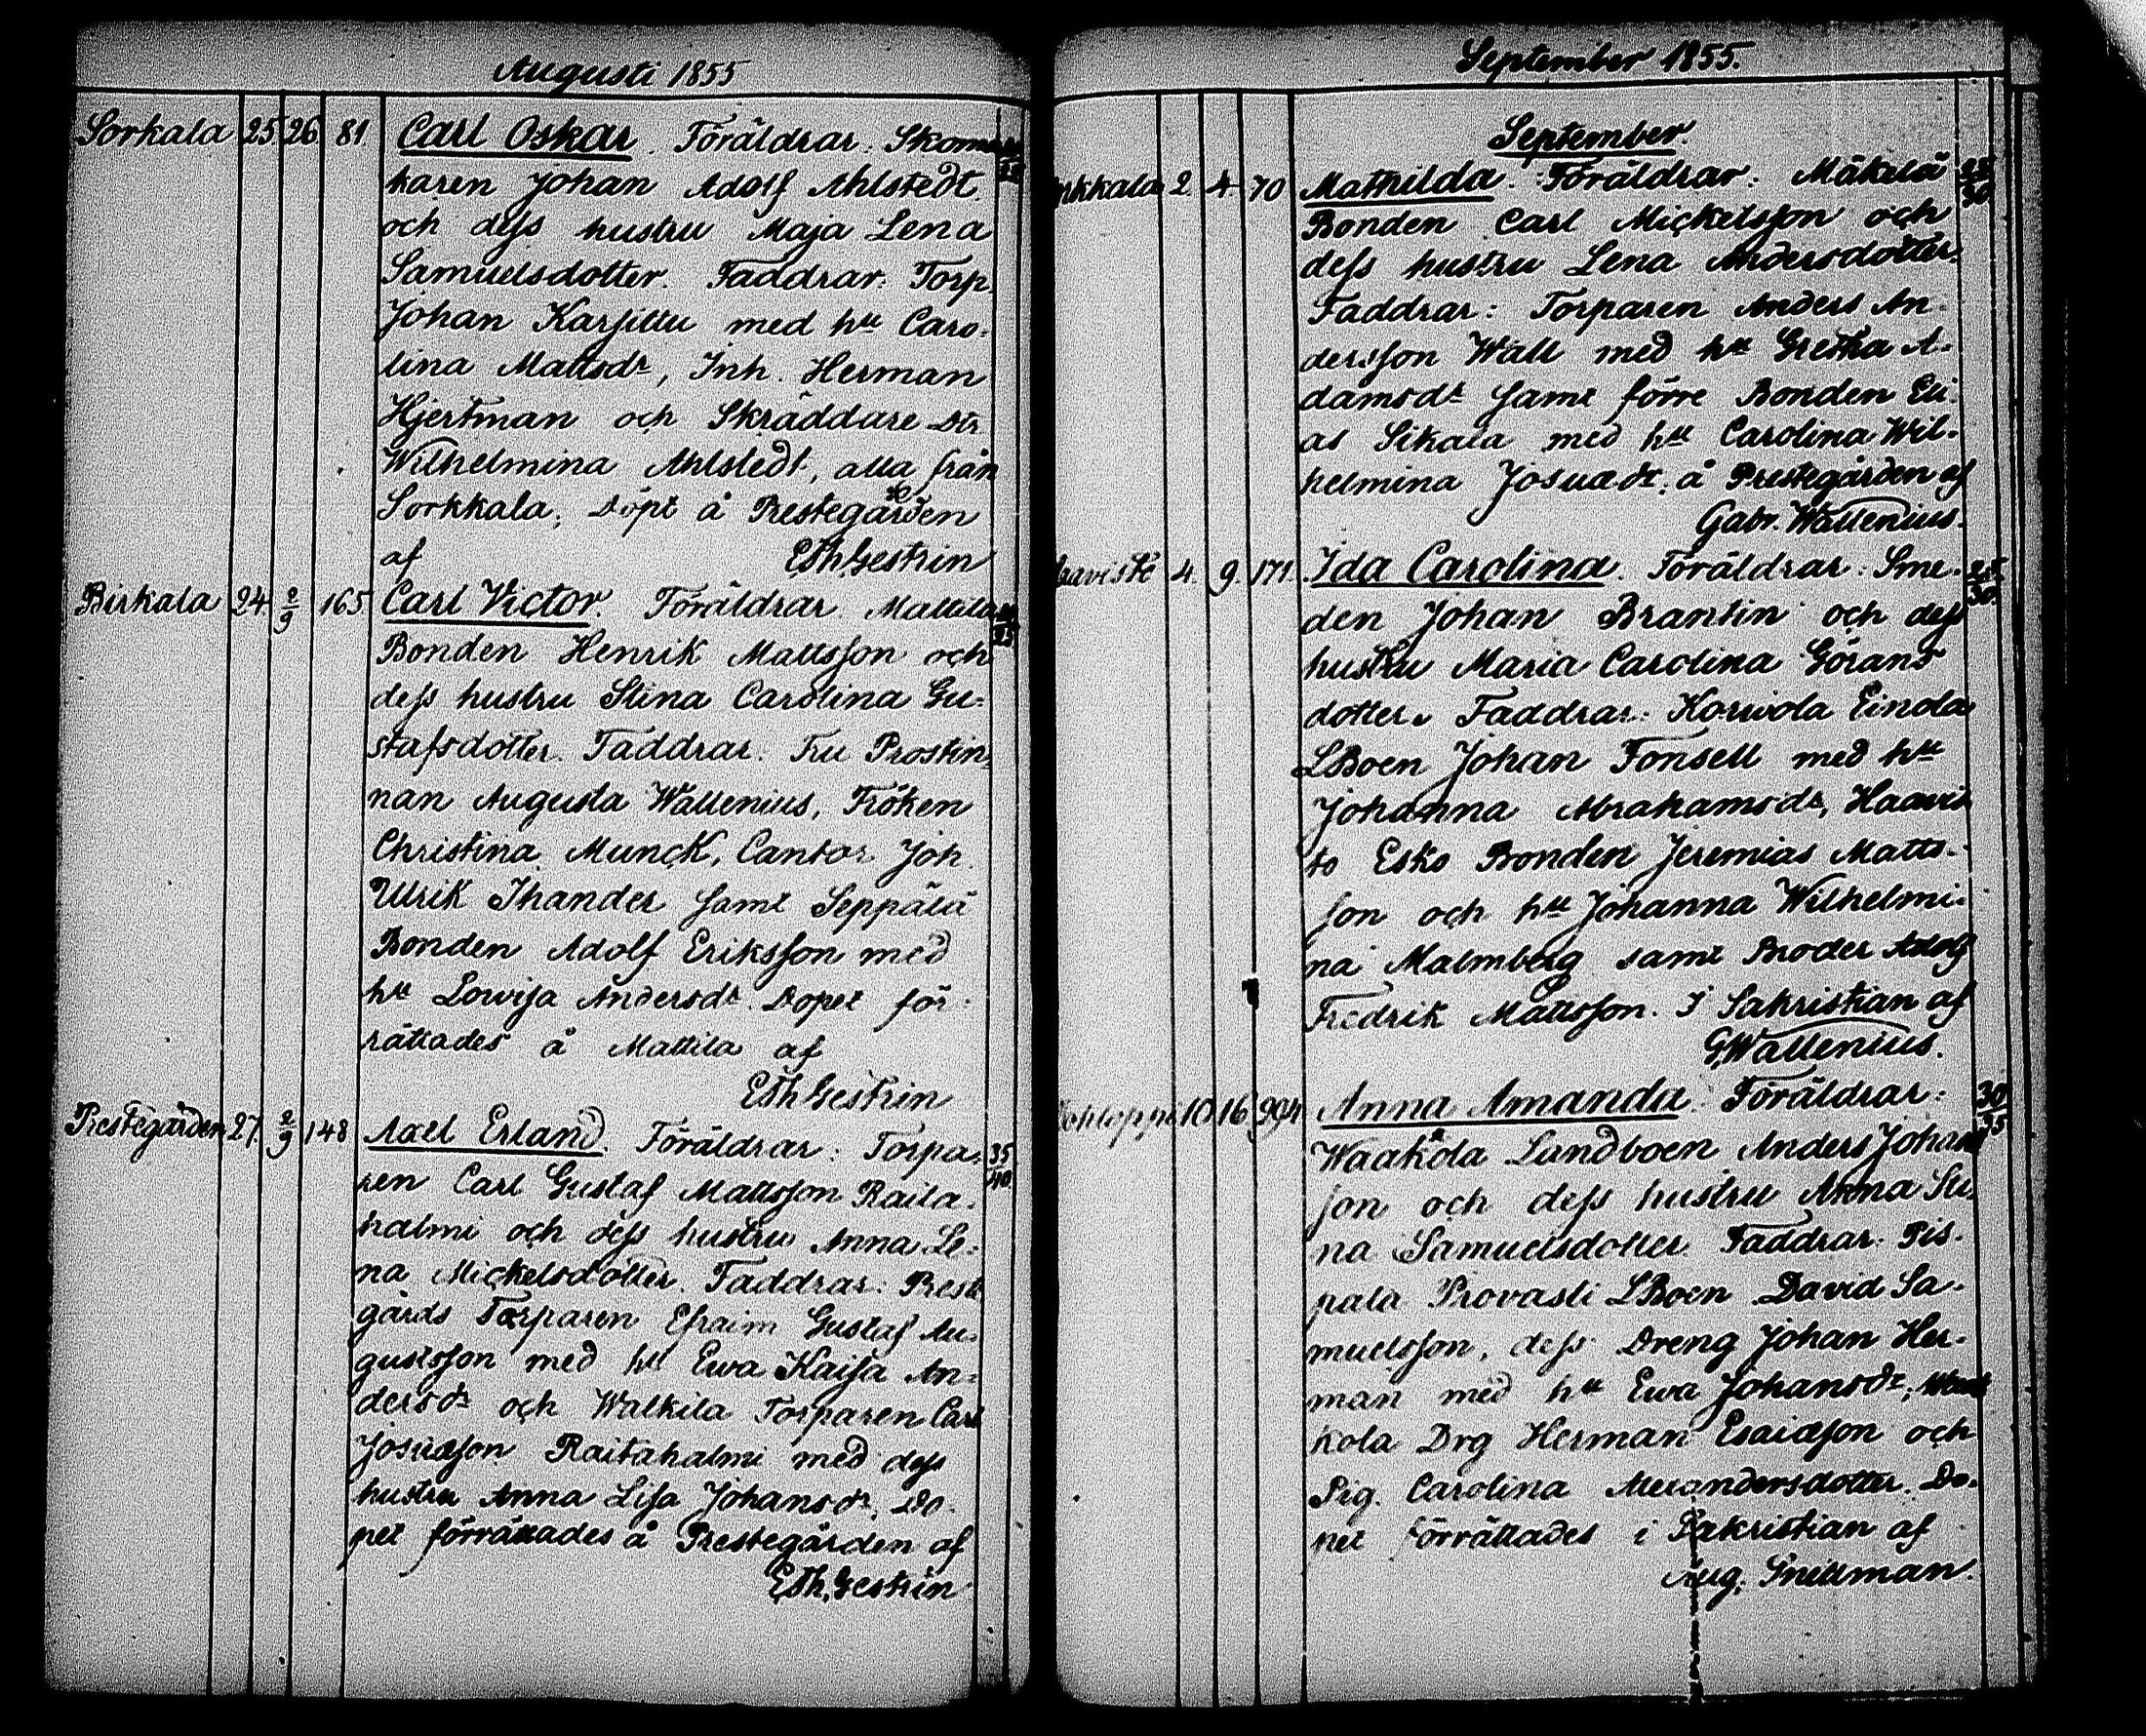 Augusti 1855
Sorkala 25. 26 81. Carl Oskar. Föräldrar: Skoma
karen Johan Adolf Ahlstedt
och dess hustru Maja Lena
Samuelsdotter. Faddrar: Torp.
Johan Karjittu med hu Caro-
lina Mattsdr, Inh. Herman
Hjertman och Skräddare Dtr.
Wilhelmina Ahlstedt, alla från
Sorkkala. Döpt å Prestegården
af EThGestrin
Birkala 24 2/9 165 Carl Victor. Föräldrar Mattila
Bonden Henrik Mattsson och
dess hustru Stina Carolina Gu-
stafsdotter. Faddrar: Fru Prostin-
nan Augusta Wallenius, Fröken
Christina Munck, Cantor Joh.
Ulrik Ihander samt Seppälä
Bonden Adolf Eriksson med
hu Lowisa Andersdr. Dopet för-
rättades å Mattila af
EThGestrin
Prestegården 27. 2/9 148 Axel Erland. Föräldrar: Torpa- 35/40
ren Carl Gustaf Mattsson Raita-
halmi och dess hustru Anna Le-
na Mickelsdotter. Faddrar: Prest
gårds Torparen Efraim Gustaf Au-
gustsson med hu Ewa Kaisa An-
dersdr och Walkila Torparen Carl
Josuæson Raitahalmi med dess
hustru Anna Lisa Johansdr. Do-
pet förrättades å Prestegården af
ETh.Gestrin
September 1855.
September.
nkkala 2 4 70 Mathilda. Föräldrar: Mäkelä 25/30
Bonden Carl Mickelsson och
dess hustru Lena Andersdotter.
Faddrar: Torparen Anders An-
dersson Wall med hu Gretha A-
damsdr samt förre Bonden Eli-
as Sikala med hu Carolina Wil-
helmina Josuædr. å Prestegården af
Gabr. Wallenius.
aavisto 4. 9. 171. Ida Carolina. Föräldrar: Sme- 25/30.
den Johan Brantin och dess
hustru Maria Carolina Görans
dotter. Faddrar: Korwola Einola
LBoen Johan Fonsell med hu
Johanna Abrahamsdr, Haavis
to Esko Bonden Jeremias Matts-
son och hu Johanna Wilhelmi-
na Malmberg samt Broder Adolf
Fredrik Mattsson. I Sakristian af
G.Wallenius.
10. 16. 294 Anna Amanda. Föräldrar: 30/35
Waakola Landboen Anders Johans
son och dess hustru Anna Sti
na Samuelsdotter. Faddrar: Pis-
pala Provasti LBoen David Sa-
muelsson, dess Dreng Johan Her-
man med hu Ewa Johansdr, Waa
kola Drg Herman Esaiæson och
Pig. Carolina Alexandersdotter. Do-
pet förrättades i Sakristian af
Aug. Snellman.